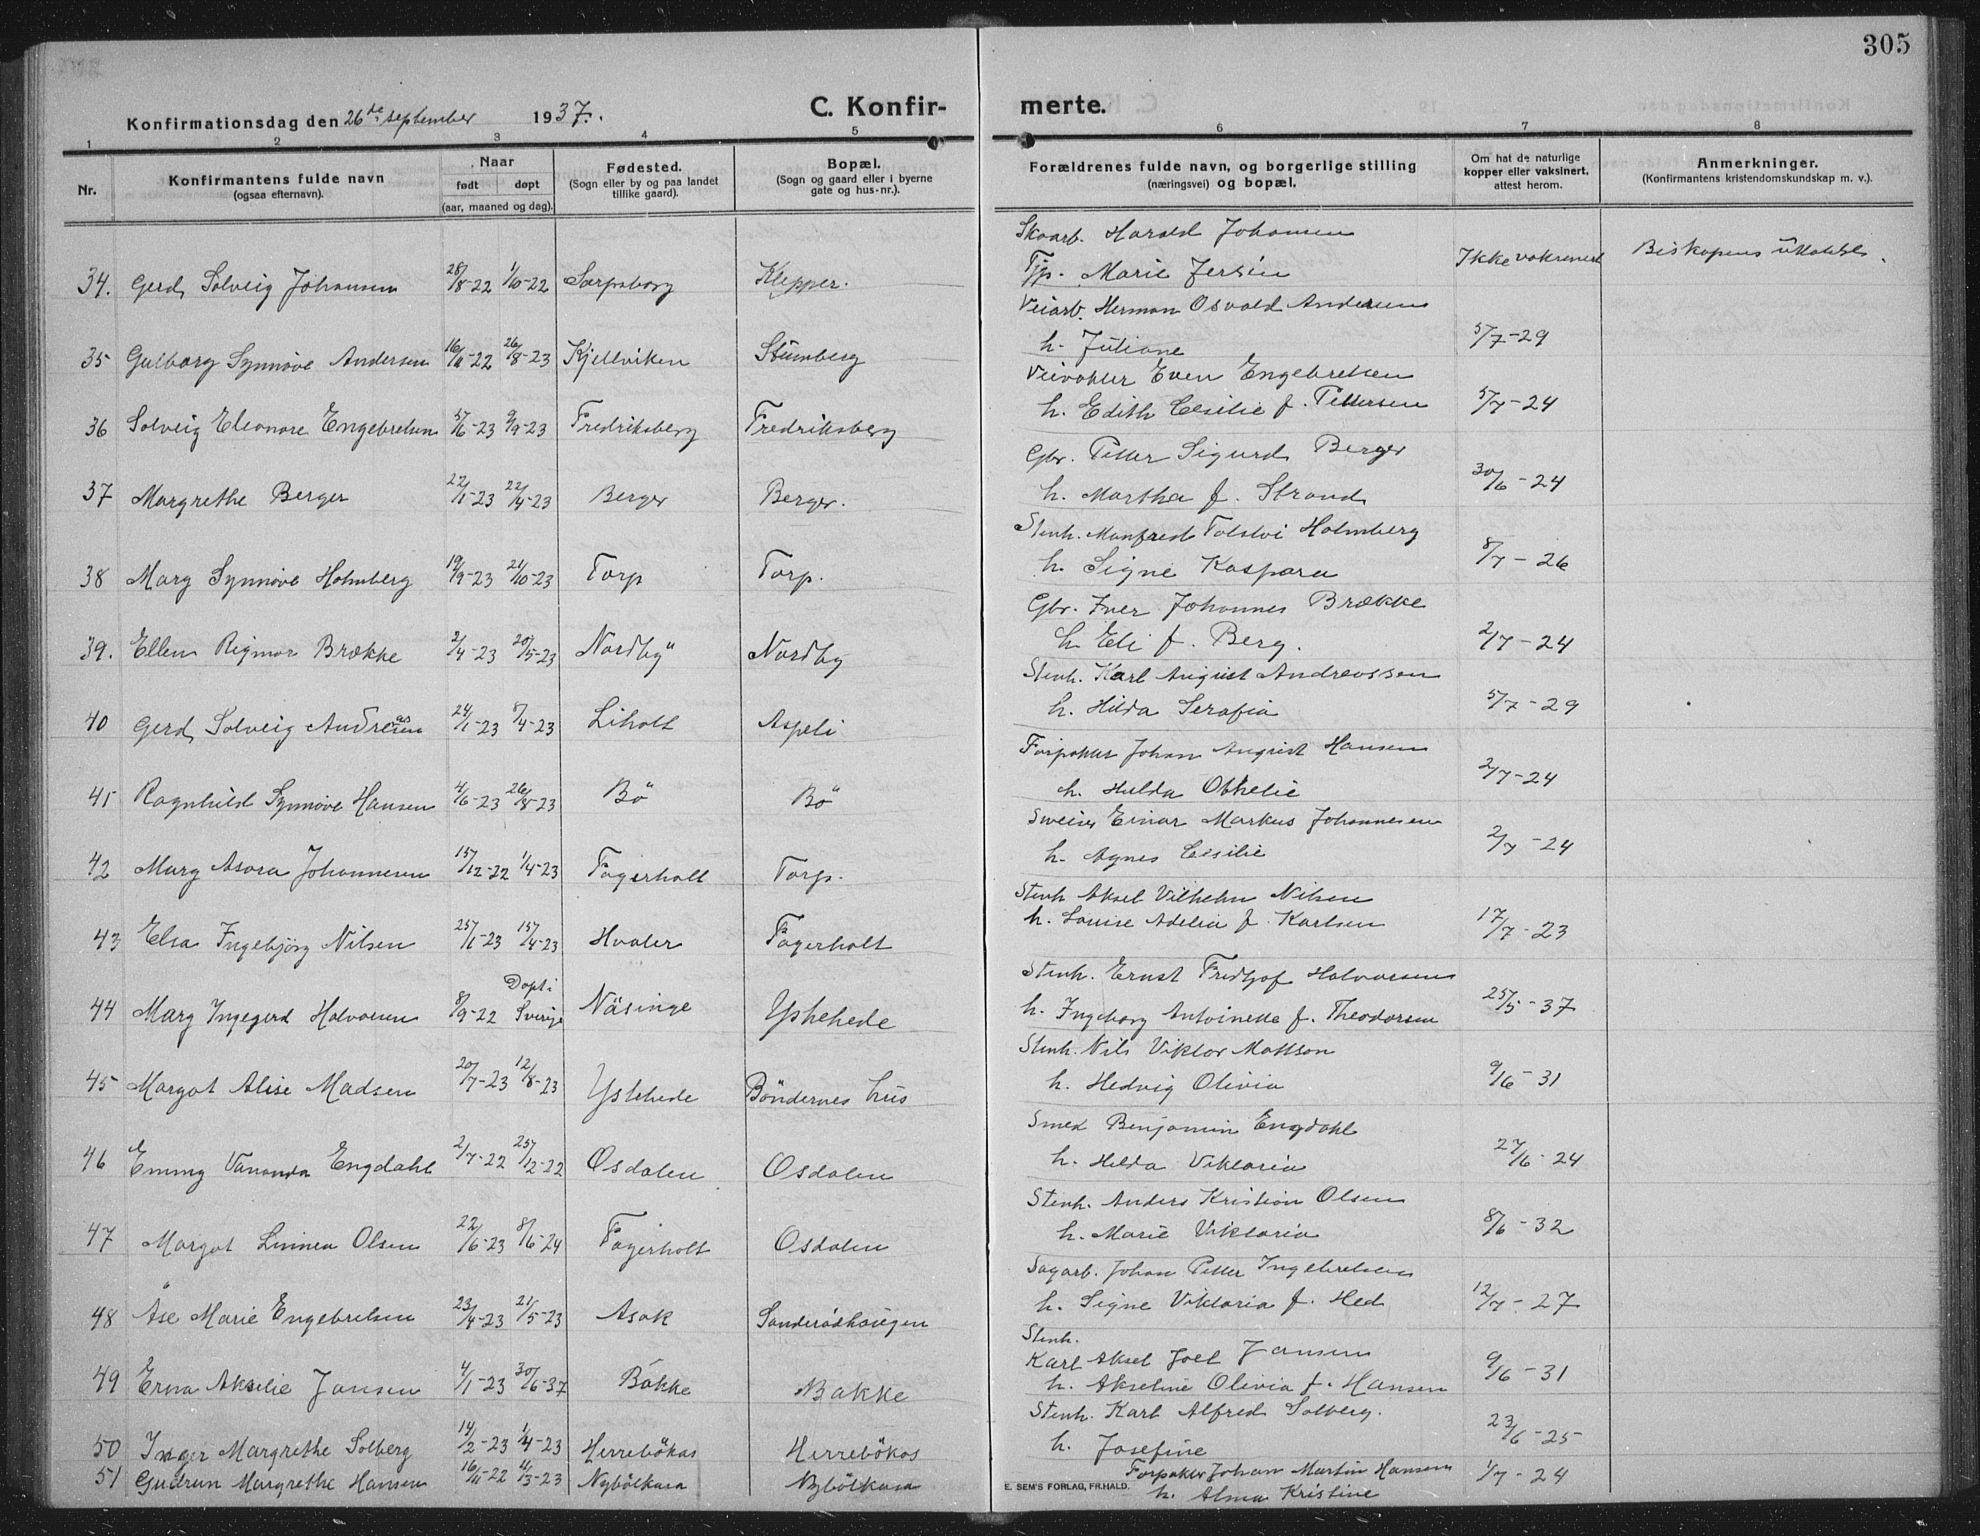 305
Konfirmationsdag den 26de september 1937. C. Konfir- merte.
1 2 3 4 5 6 7 8
Nr. Konfirmantens fulde navn (ogsaa efternavn). Naar født døpt (aar, maaned og dag). Fødested. (Sogn eller by og paa landet tillike gaard). Bopæl. (Sogn og gaard eller i byerne gate og hus-nr.). Forældrenes fulde navn, og borgerlige stilling (næringsvei) og bopæl. Om hat de naturlige kopper eller vaksinert, attest herom. Anmerkninger. (Konfirmantens kristendomskundskap m. v.).
Skoarb. Harald Johansen
34. Gerd Solveig Johansen 28/8-22 1/10-22 Sarpsborg Klepper. Tjp. Marie Jensen Ikke Biskopens
Veiarb. Herman Osvald Andersen
35 Gulborg Synnøve Andersen 16/11-22 26/8-23 Kjellviken Stumberg h. Juliane 5/7-29
Veivokter Even Engebretsen
36 Solveig Eleonore Engebretsen 5/6-23 9/9-23 Fredriksberg Fredriksberg h. Edith Cesilie f. Pettersen 5/7-24
Gbr. Petter Sigurd Berger
37 Margrethe Berger 22/1-23 22/4-23 Berger Berger. h. Martha f. Strand 30/6-24
Stenh. Manfred Tolstoi Holmberg
38 Mary Synnøve Holmberg 19/9-23 21/10-23 Torp Torp. h. Signe Kaspara 8/7-26
Gbr. Iver Johannes Brække
39. Ellen Rigmor Brække 2/4-23 20/5-23 Nordby Nordby h. Eli f. Berg. 2/7-24
Stenh. Karl August Andreassen
40 Gerd Solveig Andreasen 24/1-23 8/4-23 Liholt Aspeli h. Hilda Serafia 5/7-29
Forpakter Johan August Hansen
41 Ragnhild Synnøve Hansen 4/6-23 26/8-23 Bö Bö h. Hulda Othelie 2/7-24
Sweiser Einar Markus Johannesen
42 Mary Asora Johannesen 15/12-22 1/4-23 Fagerholt Torp. h. Agnes Cesilie 2/7-24
Stenh Aksel Vilhelm Nilsen
43 Elsa Ingebjörg Nilsen 25/1-23 15/4-23 Hvaler Fagerholt h. Louise Adelia f. Karlsen 17/7-23
Stenh. Ernst Fridtjof Halvorsen
44 Mary Ingegerd Halvorsen 8/9-22 Döpt i Sverige Näsinge Ystehede h. Ingeborg Antoinette f. Theodorsen 25/5-37
Stenh. Nils Viktor Mattson
45 Margot Alise Madsen 20/7-23 12/8-23 Ystehede Böndernes hus h. Hedvig Olivia 9/6-31
Smed Benjamin Engdahl
46 Emmy Vananda Engdahl 2/7-22 25/12-22 Osdalen Osdalen h. Hilda Viktoria 27/6-24
Stenh. Anders Kristian Olsen
47 Margot Linnea Olsen 22/6-23 8/6-24 Fagerholt Osdalen h. Marie Viktoria 8/6-32
Sagarb. Johan Petter Ingebretsen
48 Åse Marie Engebretsen 23/4-23 21/5-23 Asak Sanderödhaugen h. Signe Viktoria f. Hed 12/7-27
Stenh.
Karl Aksel Joel Jansen
49 Erna Akselie Jansen 4/1-23 30/6-37 Bakke Bakke h. Akseline Olivia f. Hansen 9/6-31
Stenh. Karl Alfred Solberg.
50 Inger Margrethe Solberg 14/2-23 1/4-23 Herrebökas Herrebökas h. Josefine 23/6-25
51 Gudrun Margrethe Hansen 16/11-22 4/3-23 Nybölkasa Nybölkasa Forpakter Johan Martin Hansen 1/7-24
h. Alma Kristine
E. SEM'S FORLAG, FR.HALD.